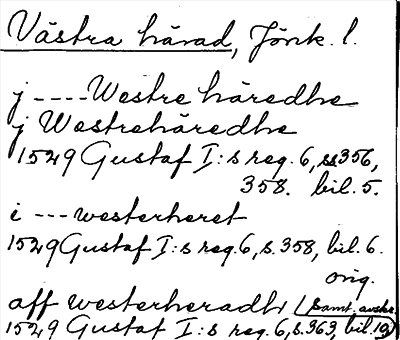 Västra härad, Jönk. l.
j ---- Westre häredhe
j Westrehäredhe
1529 Gustaf I:s reg. 6, ss 356,
358. bil. 5.
i --- westerheret
1529 Gustaf I:s reg. 6, s. 358, bil. 6.
orig.
aff westerheradh (samt. avskr.
1529 Gustaf I:s reg. 6, s. 363, bil. 19)